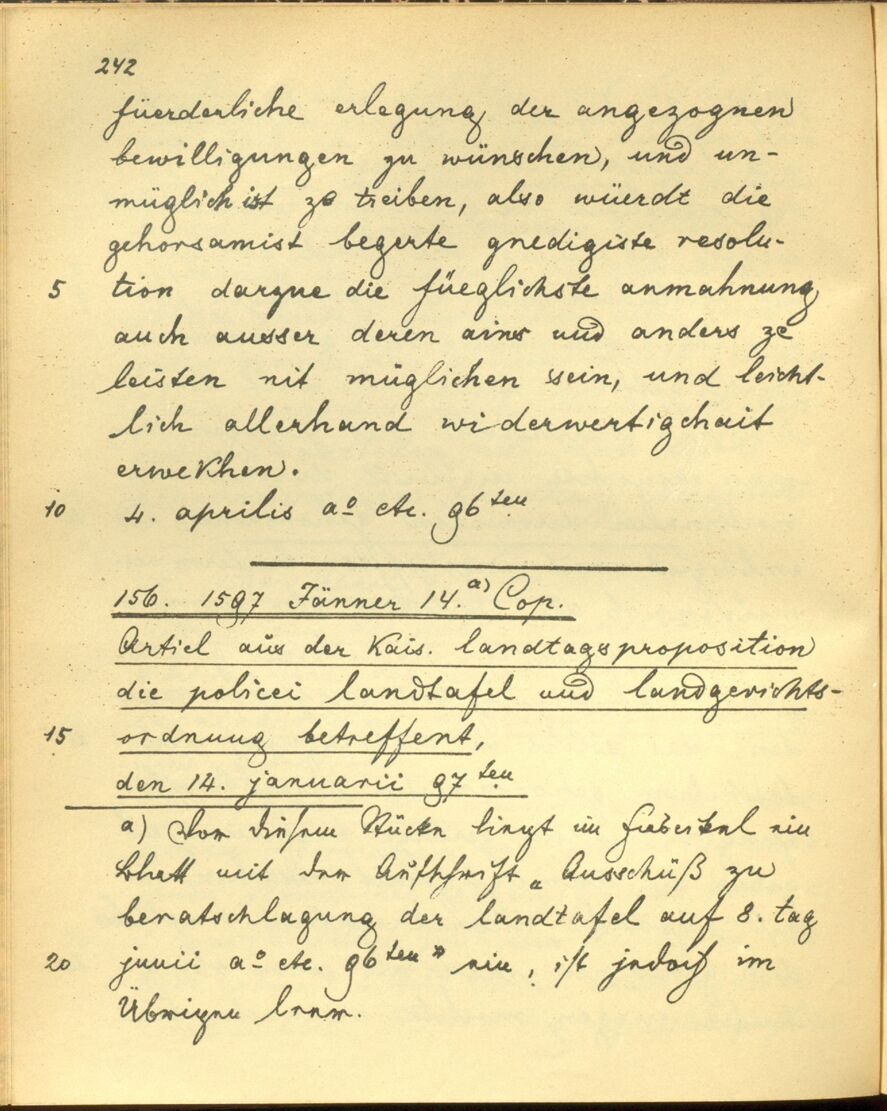 242
füerderliche erlegung der angezognen
bewilligungen zu wünschen, und un-
müglich ist ze treiben, also würdt die
gehorsamist begerte gnedigiste resolu-
5 tion darzue die füeglichste anmahnung
auch ausser deren ains und anders ze
leisten nit müglichen sein, und leicht-
lich allerhand widerwertigchait
erwekhen.
10 4. aprilis aº etc. 96ten
156. 1597 Jänner 14.a) Cop.
Articl aus der Kais. landtagsproposition
die policei landtafel und landgerichts-
15 ordnung betreffent,
den 14. januarii 97ten
a) Vor diesem Stücke liegt im Fasceikel ein
Blatt mit der Aufschrift „Ausschuß zu
beratschlagung der landtafel auf 8. tag
20 junii aº etc. 96ten" ein, ist jedoch im
Übrigen leer.